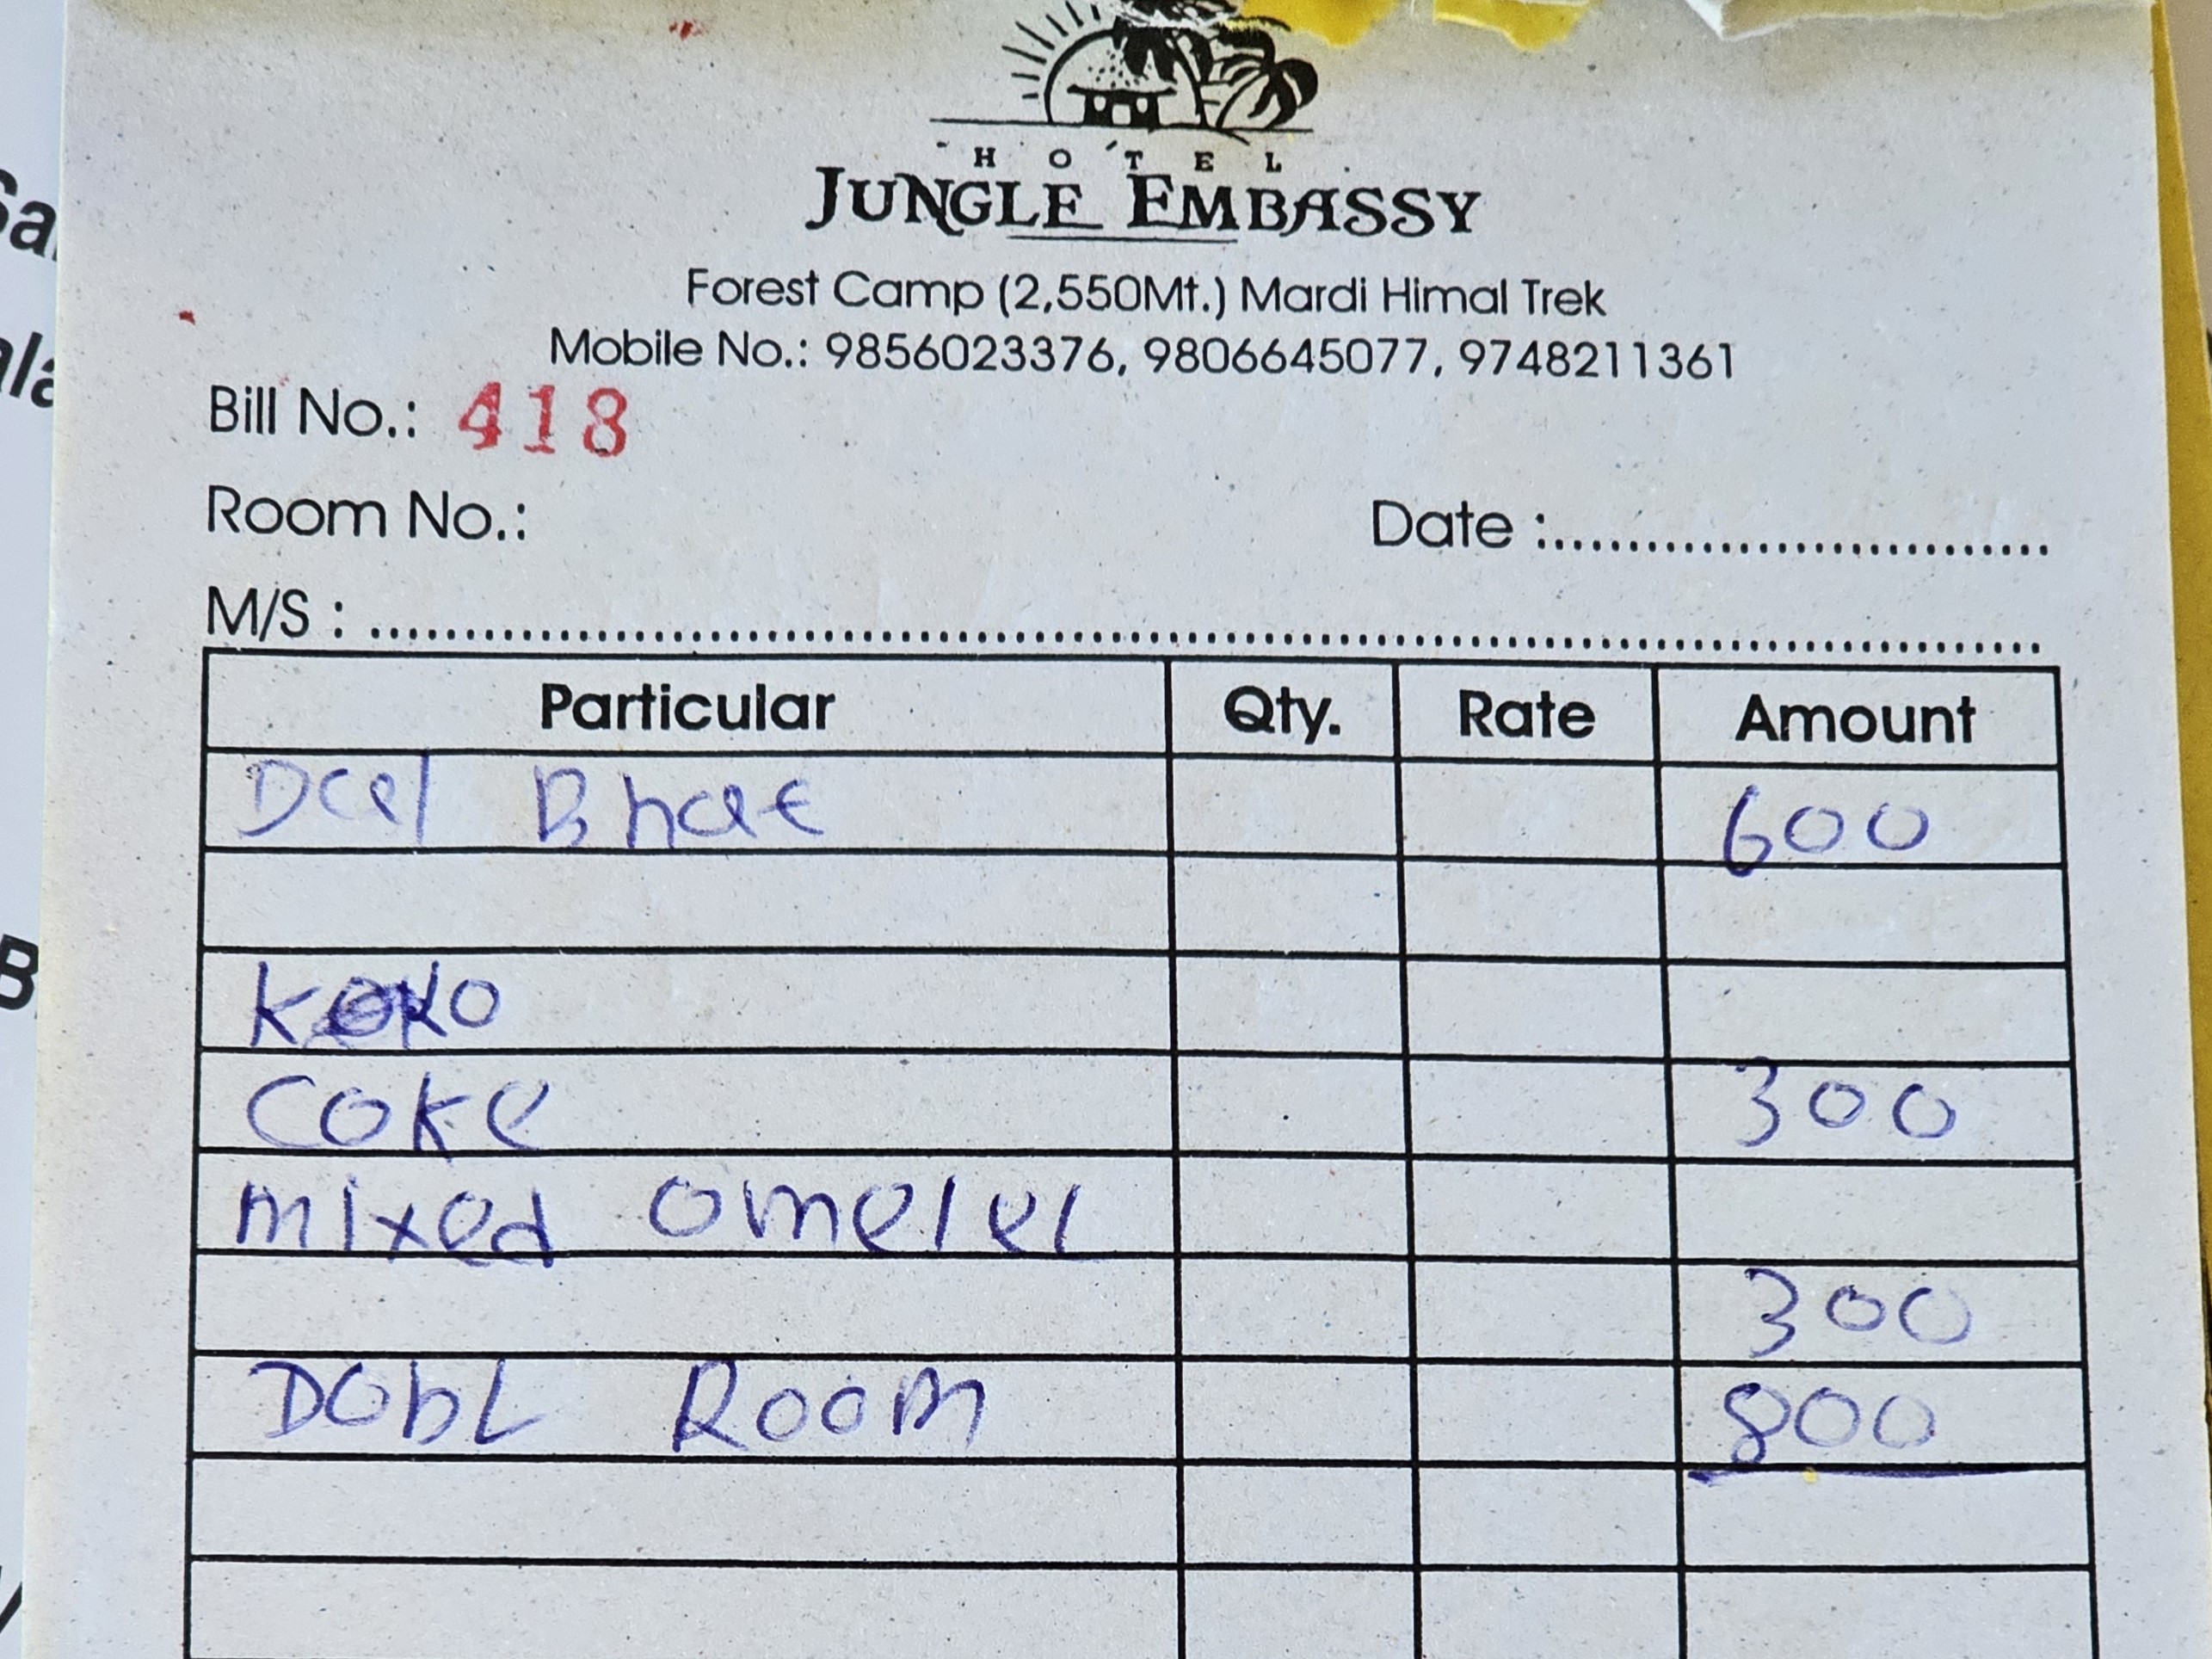 HOTEL
JUNGLE EMBASSY
Forest Camp (2,550Mt.) Mardi Himal Trek
Mobile No.: 9856023376, 9806645077, 9748211361
Bill No.: 418
Room No.: Date :
M/S :
Particular Qty. Rate Amount
Dal Bhat 600
Coke 300
mixed omelet
300
DObL Room 800
Sa
ala
B